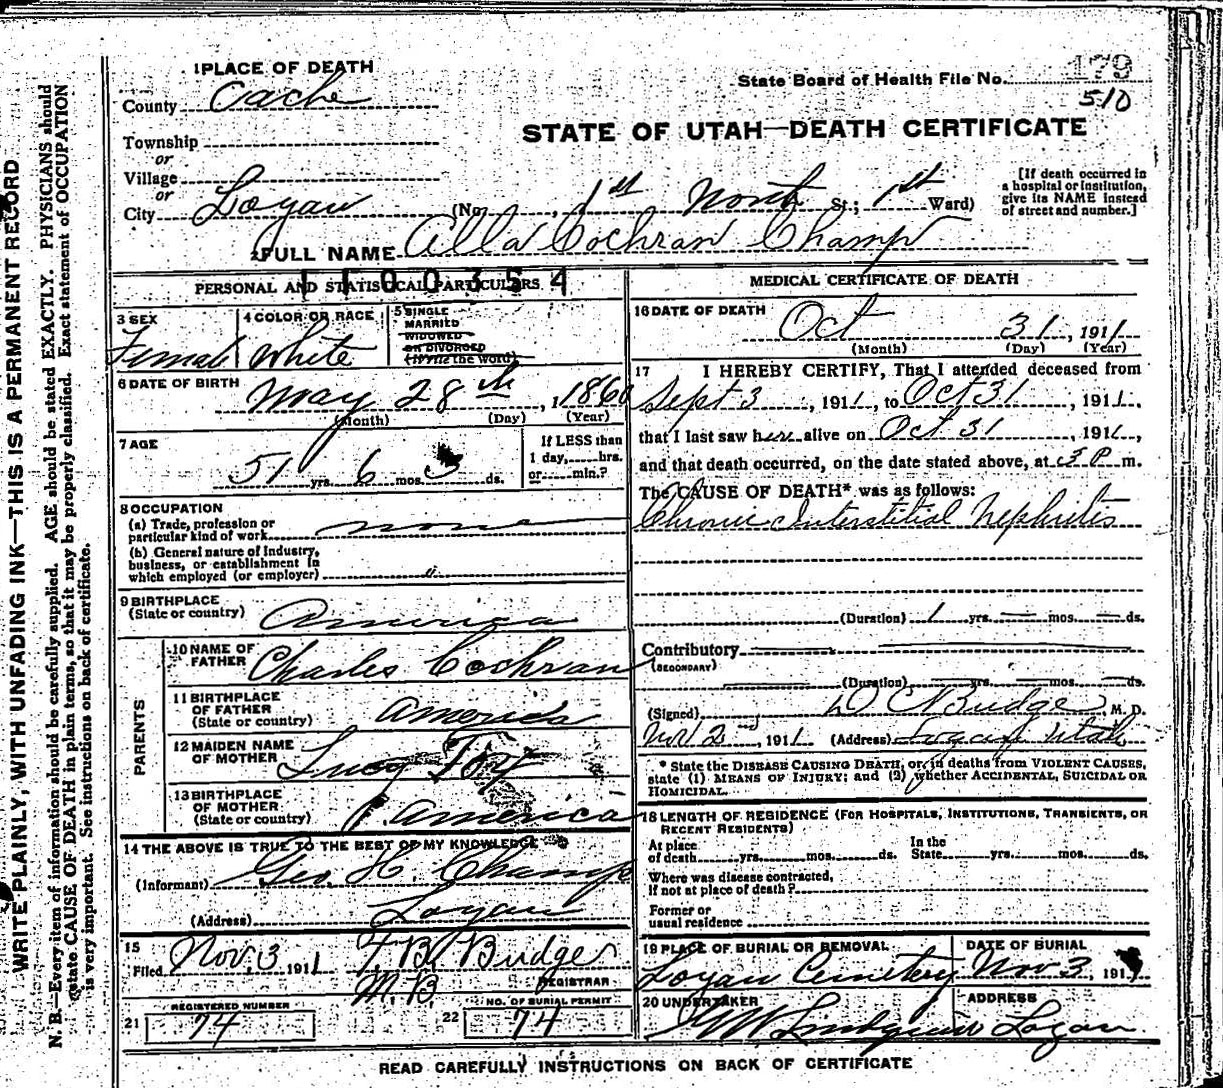 1 PLACE OF DEATH
County Cache
State Board of Health File No. 179
510
STATE OF UTAH—DEATH CERTIFICATE
Township
or
Village
or
City Logan (No. , 1st North St.; 1st Ward)
[If death occurred in a hospital or institution, give its NAME instead of street and number.]
2 FULL NAME Alla Cochran Champ
PERSONAL AND STATISTICAL PARTICULARS
00354
3 SEX
Female
4 COLOR OR RACE
White
5 SINGLE
MARRIED
WIDOWED
OR DIVORCED
(Write the word)
6 DATE OF BIRTH
May 28th, 1860
(Month) (Day) (Year)
7 AGE
51 yrs. 6 mos. 3 ds.
If LESS than
1 day, hrs.
or min.?
8 OCCUPATION
(a) Trade, profession or
particular kind of work none
(b) General nature of Industry,
business, or establishment in
which employed (or employer) "
9 BIRTHPLACE
(State or country) America
PARENTS
10 NAME OF
FATHER Charles Cochran
11 BIRTHPLACE
OF FATHER
(State or country) America
12 MAIDEN NAME
OF MOTHER Lucy
13 BIRTHPLACE
OF MOTHER
(State or country) America
14 THE ABOVE IS TRUE TO THE BEST OF MY KNOWLEDGE
(Informant) Geo. H. Champ
(Address) Logan
15
Filed Nov. 3 1911 T B Budge
M.D REGISTRAR
REGISTERED NUMBER
21 74
NO. OF BURIAL PERMIT
22 74
MEDICAL CERTIFICATE OF DEATH
16 DATE OF DEATH
Oct 31, 1911
(Month) (Day) (Year)
17 I HEREBY CERTIFY, That I attended deceased from
Sept 3, 1911, to Oct 31, 1911,
that I last saw her alive on Oct 31, 1911,
and that death occurred, on the date stated above, at 3 P m.
The CAUSE OF DEATH* was as follows:
Chronic Interstitial Nephritis
(Duration) 1 yrs. — mos. — ds.
Contributory
(SECONDARY)
(Duration) yrs. mos. ds.
(Signed) D C Budge M. D.
Nov 2, 1911 (Address) Logan Utah
* State the DISEASE CAUSING DEATH, or, in deaths from VIOLENT CAUSES,
state (1) MEANS OF INJURY; and (2) whether ACCIDENTAL, SUICIDAL OR
HOMICIDAL.
18 LENGTH OF RESIDENCE (FOR HOSPITALS, INSTITUTIONS, TRANSIENTS, OR
RECENT RESIDENTS)
At place
of death yrs. mos. ds.
In the
State yrs. mos. ds.
Where was disease contracted,
If not at place of death?
Former or
usual residence
19 PLACE OF BURIAL OR REMOVAL
Logan Cemetery
DATE OF BURIAL
Nov 3, 191
20 UNDERTAKER
Lindquist
ADDRESS
Logan
READ CAREFULLY INSTRUCTIONS ON BACK OF CERTIFICATE
WRITE PLAINLY, WITH UNFADING INK—THIS IS A PERMANENT RECORD
N. B.—Every item of information should be carefully supplied. AGE should be stated EXACTLY. PHYSICIANS should
state CAUSE OF DEATH in plain terms, so that it may be properly classified. Exact statement of OCCUPATION
is very important. See instructions on back of certificate.